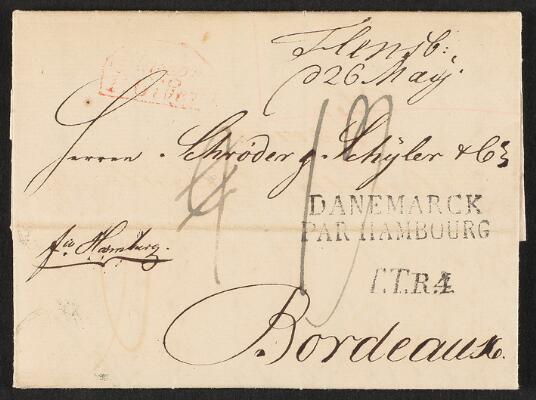 Flensb:
d 26 May
Herren Schröder & Schÿler & Co
DANEMARCK
PAR HAMBOURG
pr Hamburg.
T.T.R.4
Bordeaux.